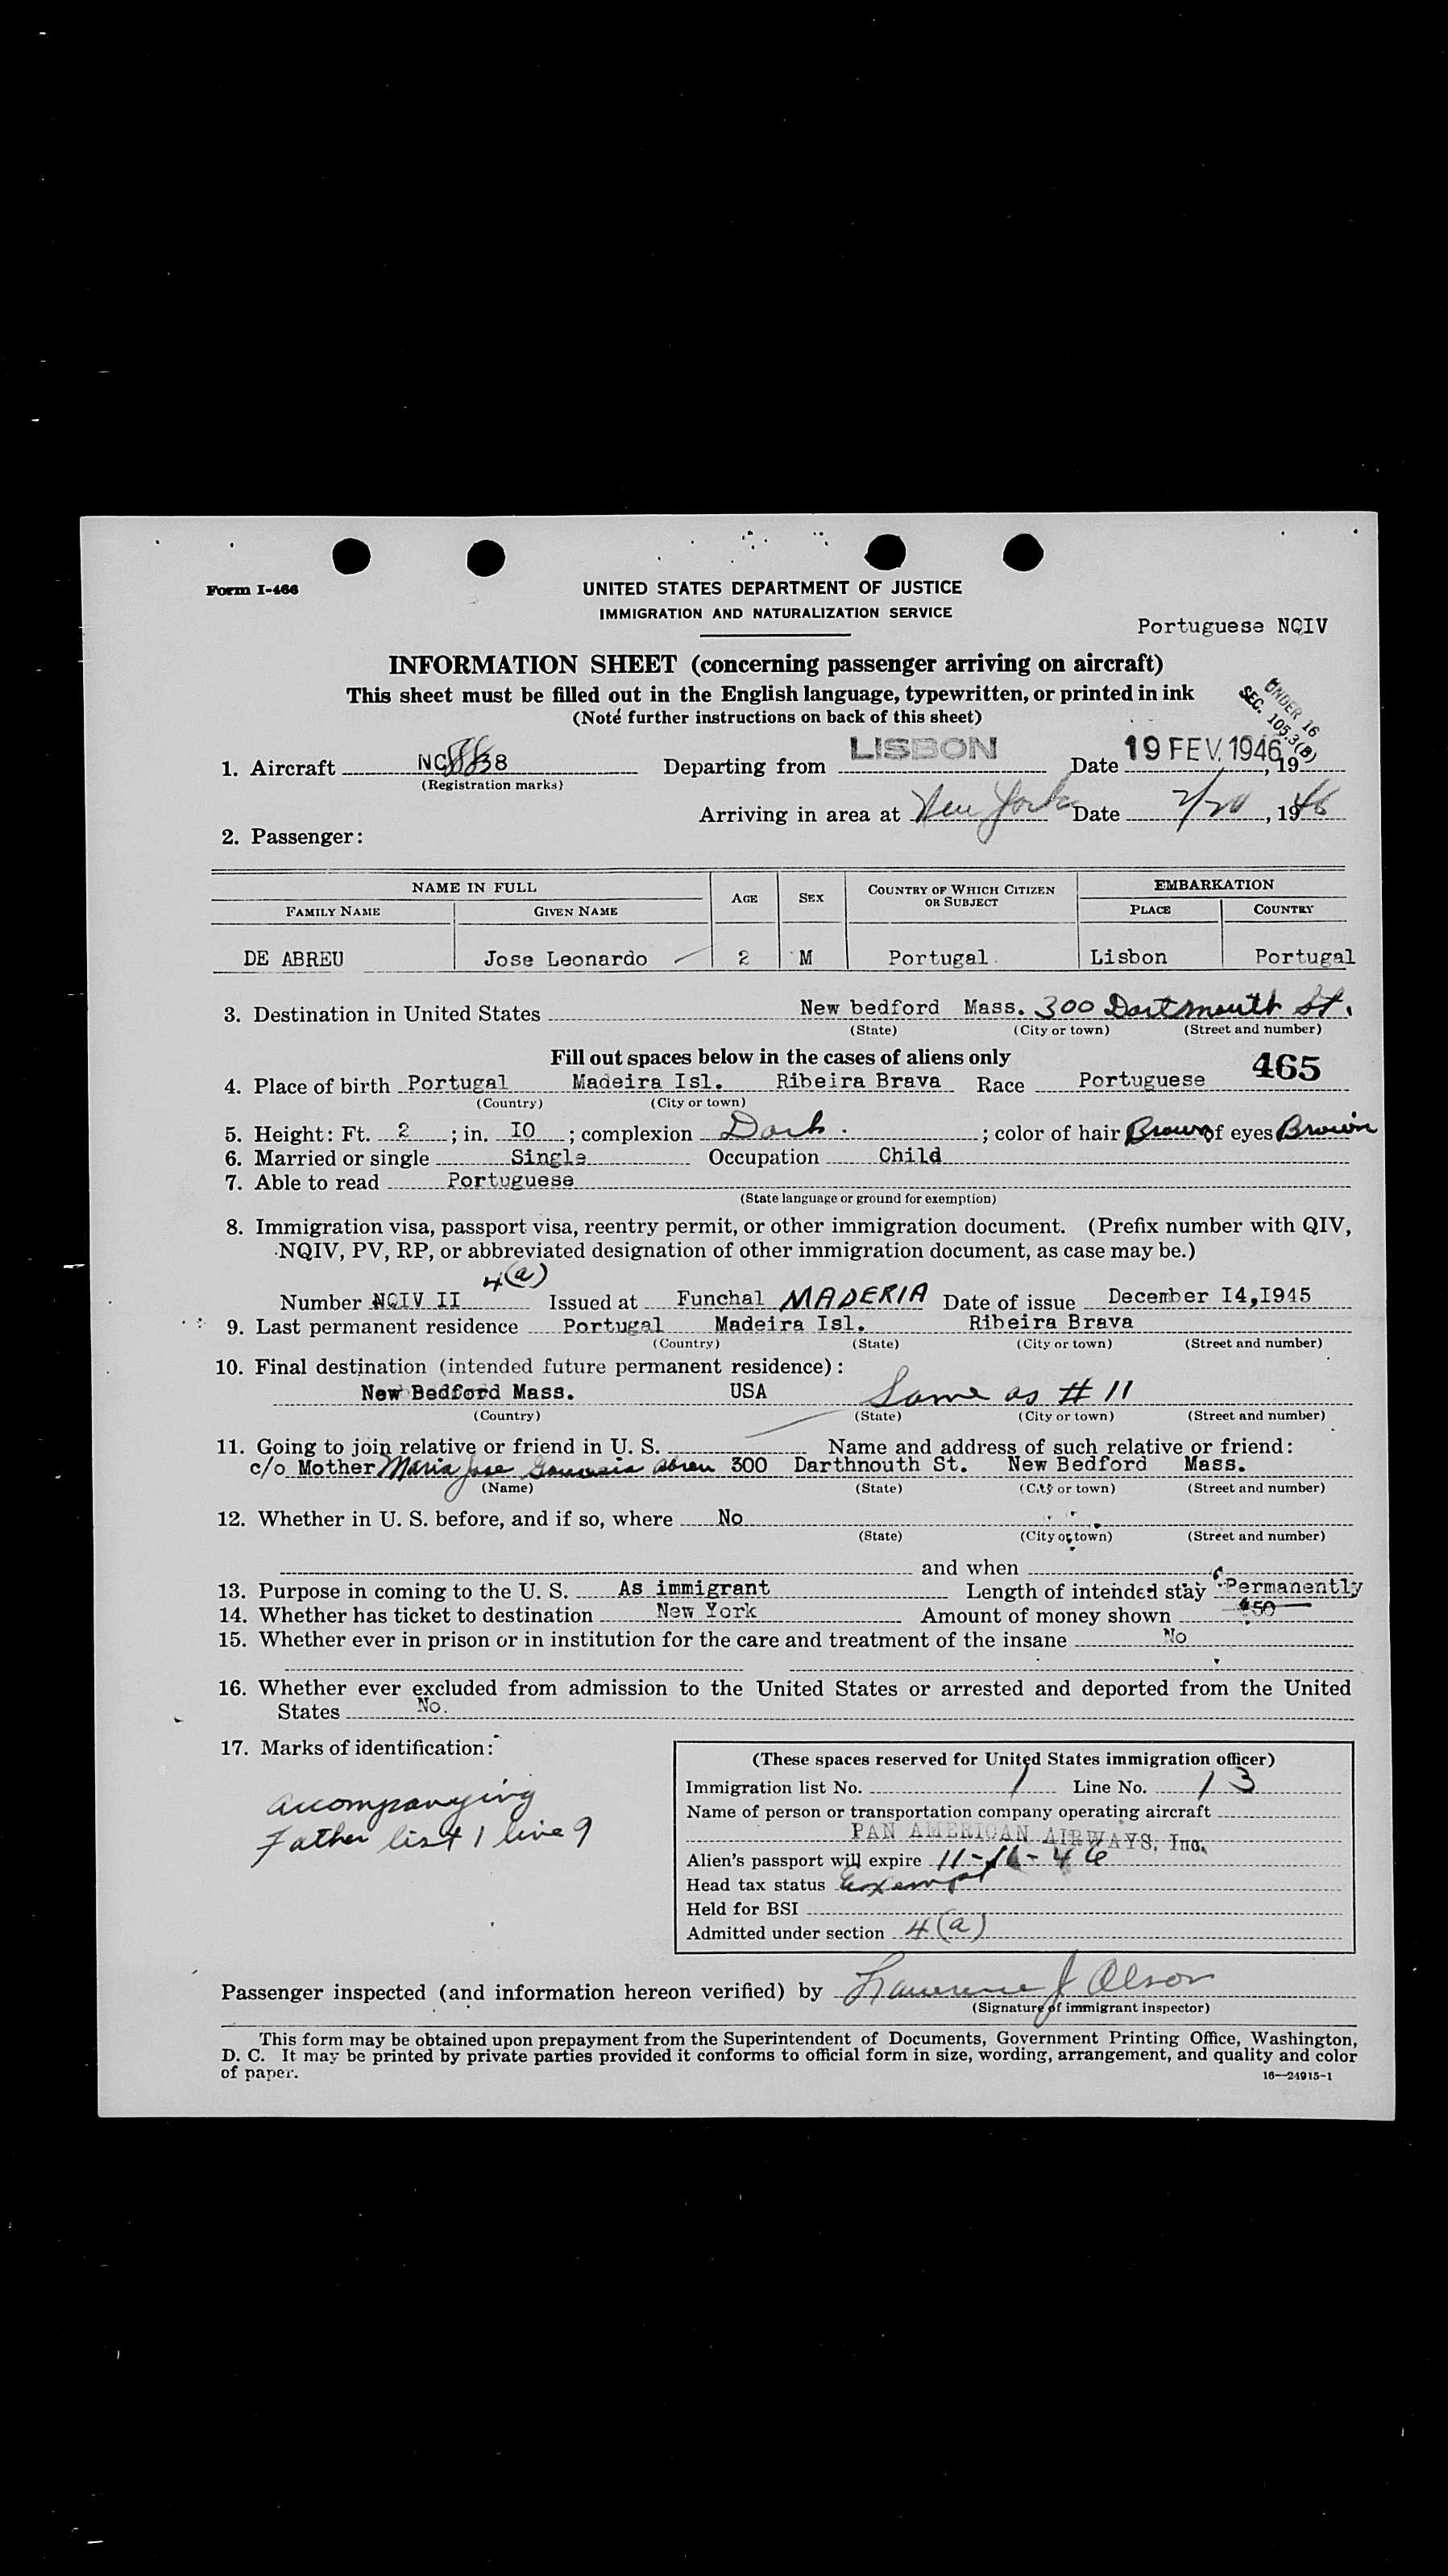 Form I-466
UNITED STATES DEPARTMENT OF JUSTICE
IMMIGRATION AND NATURALIZATION SERVICE
Portuguese NQIV
INFORMATION SHEET (concerning passenger arriving on aircraft)
This sheet must be filled out in the English language, typewritten, or printed in ink
(Note further instructions on back of this sheet)
UNDER 16
SEC. 105.3(B)
1. Aircraft NC 8838 Departing from LISBON Date 19 FEV. 1946, 19
(Registration marks)
Arriving in area at New York Date 2/20, 1946
2. Passenger:
NAME IN FULL AGE SEX COUNTRY OF WHICH CITIZEN OR SUBJECT EMBARKATION
FAMILY NAME GIVEN NAME PLACE COUNTRY
DE ABREU Jose Leonardo 2 M Portugal Lisbon Portugal
3. Destination in United States New bedford Mass. 300 Dartmouth St.
(State) (City or town) (Street and number)
Fill out spaces below in the cases of aliens only
465
4. Place of birth Portugal Madeira Isl. Ribeira Brava Race Portuguese
(Country) (City or town)
5. Height: Ft. 2; in. I0; complexion Dark; color of hair Brown of eyes Brown
6. Married or single Single Occupation Child
7. Able to read Portuguese
(State language or ground for exemption)
8. Immigration visa, passport visa, reentry permit, or other immigration document. (Prefix number with QIV,
NQIV, PV, RP, or abbreviated designation of other immigration document, as case may be.)
4(a)
Number NQIV II Issued at Funchal MADERIA Date of issue December I4,I945
9. Last permanent residence Portugal Madeira Isl. Ribeira Brava
(Country) (State) (City or town) (Street and number)
10. Final destination (intended future permanent residence):
New Bedford Mass. USA Same as # 11
(Country) (State) (City or town) (Street and number)
11. Going to join relative or friend in U. S. Name and address of such relative or friend:
c/o Mother Maria Jose Abreu 300 Darthnouth St. New Bedford Mass.
(Name) (State) (City or town) (Street and number)
12. Whether in U. S. before, and if so, where No
(State) (City or town) (Street and number)
and when
13. Purpose in coming to the U. S. As immigrant Length of intended stay Permanently
14. Whether has ticket to destination New York Amount of money shown $50
15. Whether ever in prison or in institution for the care and treatment of the insane No
16. Whether ever excluded from admission to the United States or arrested and deported from the United
States No.
17. Marks of identification:
accompanying
Father list 1 line 9
(These spaces reserved for United States immigration officer)
Immigration list No. 1 Line No. 13
Name of person or transportation company operating aircraft
PAN AMERICAN AIRWAYS, Inc.
Alien's passport will expire 11-16-46
Head tax status Exempt
Held for BSI
Admitted under section 4(a)
Passenger inspected (and information hereon verified) by Lawrence J Olson
(Signature of immigrant inspector)
This form may be obtained upon prepayment from the Superintendent of Documents, Government Printing Office, Washington,
D. C. It may be printed by private parties provided it conforms to official form in size, wording, arrangement, and quality and color
of paper.
16—24915-1